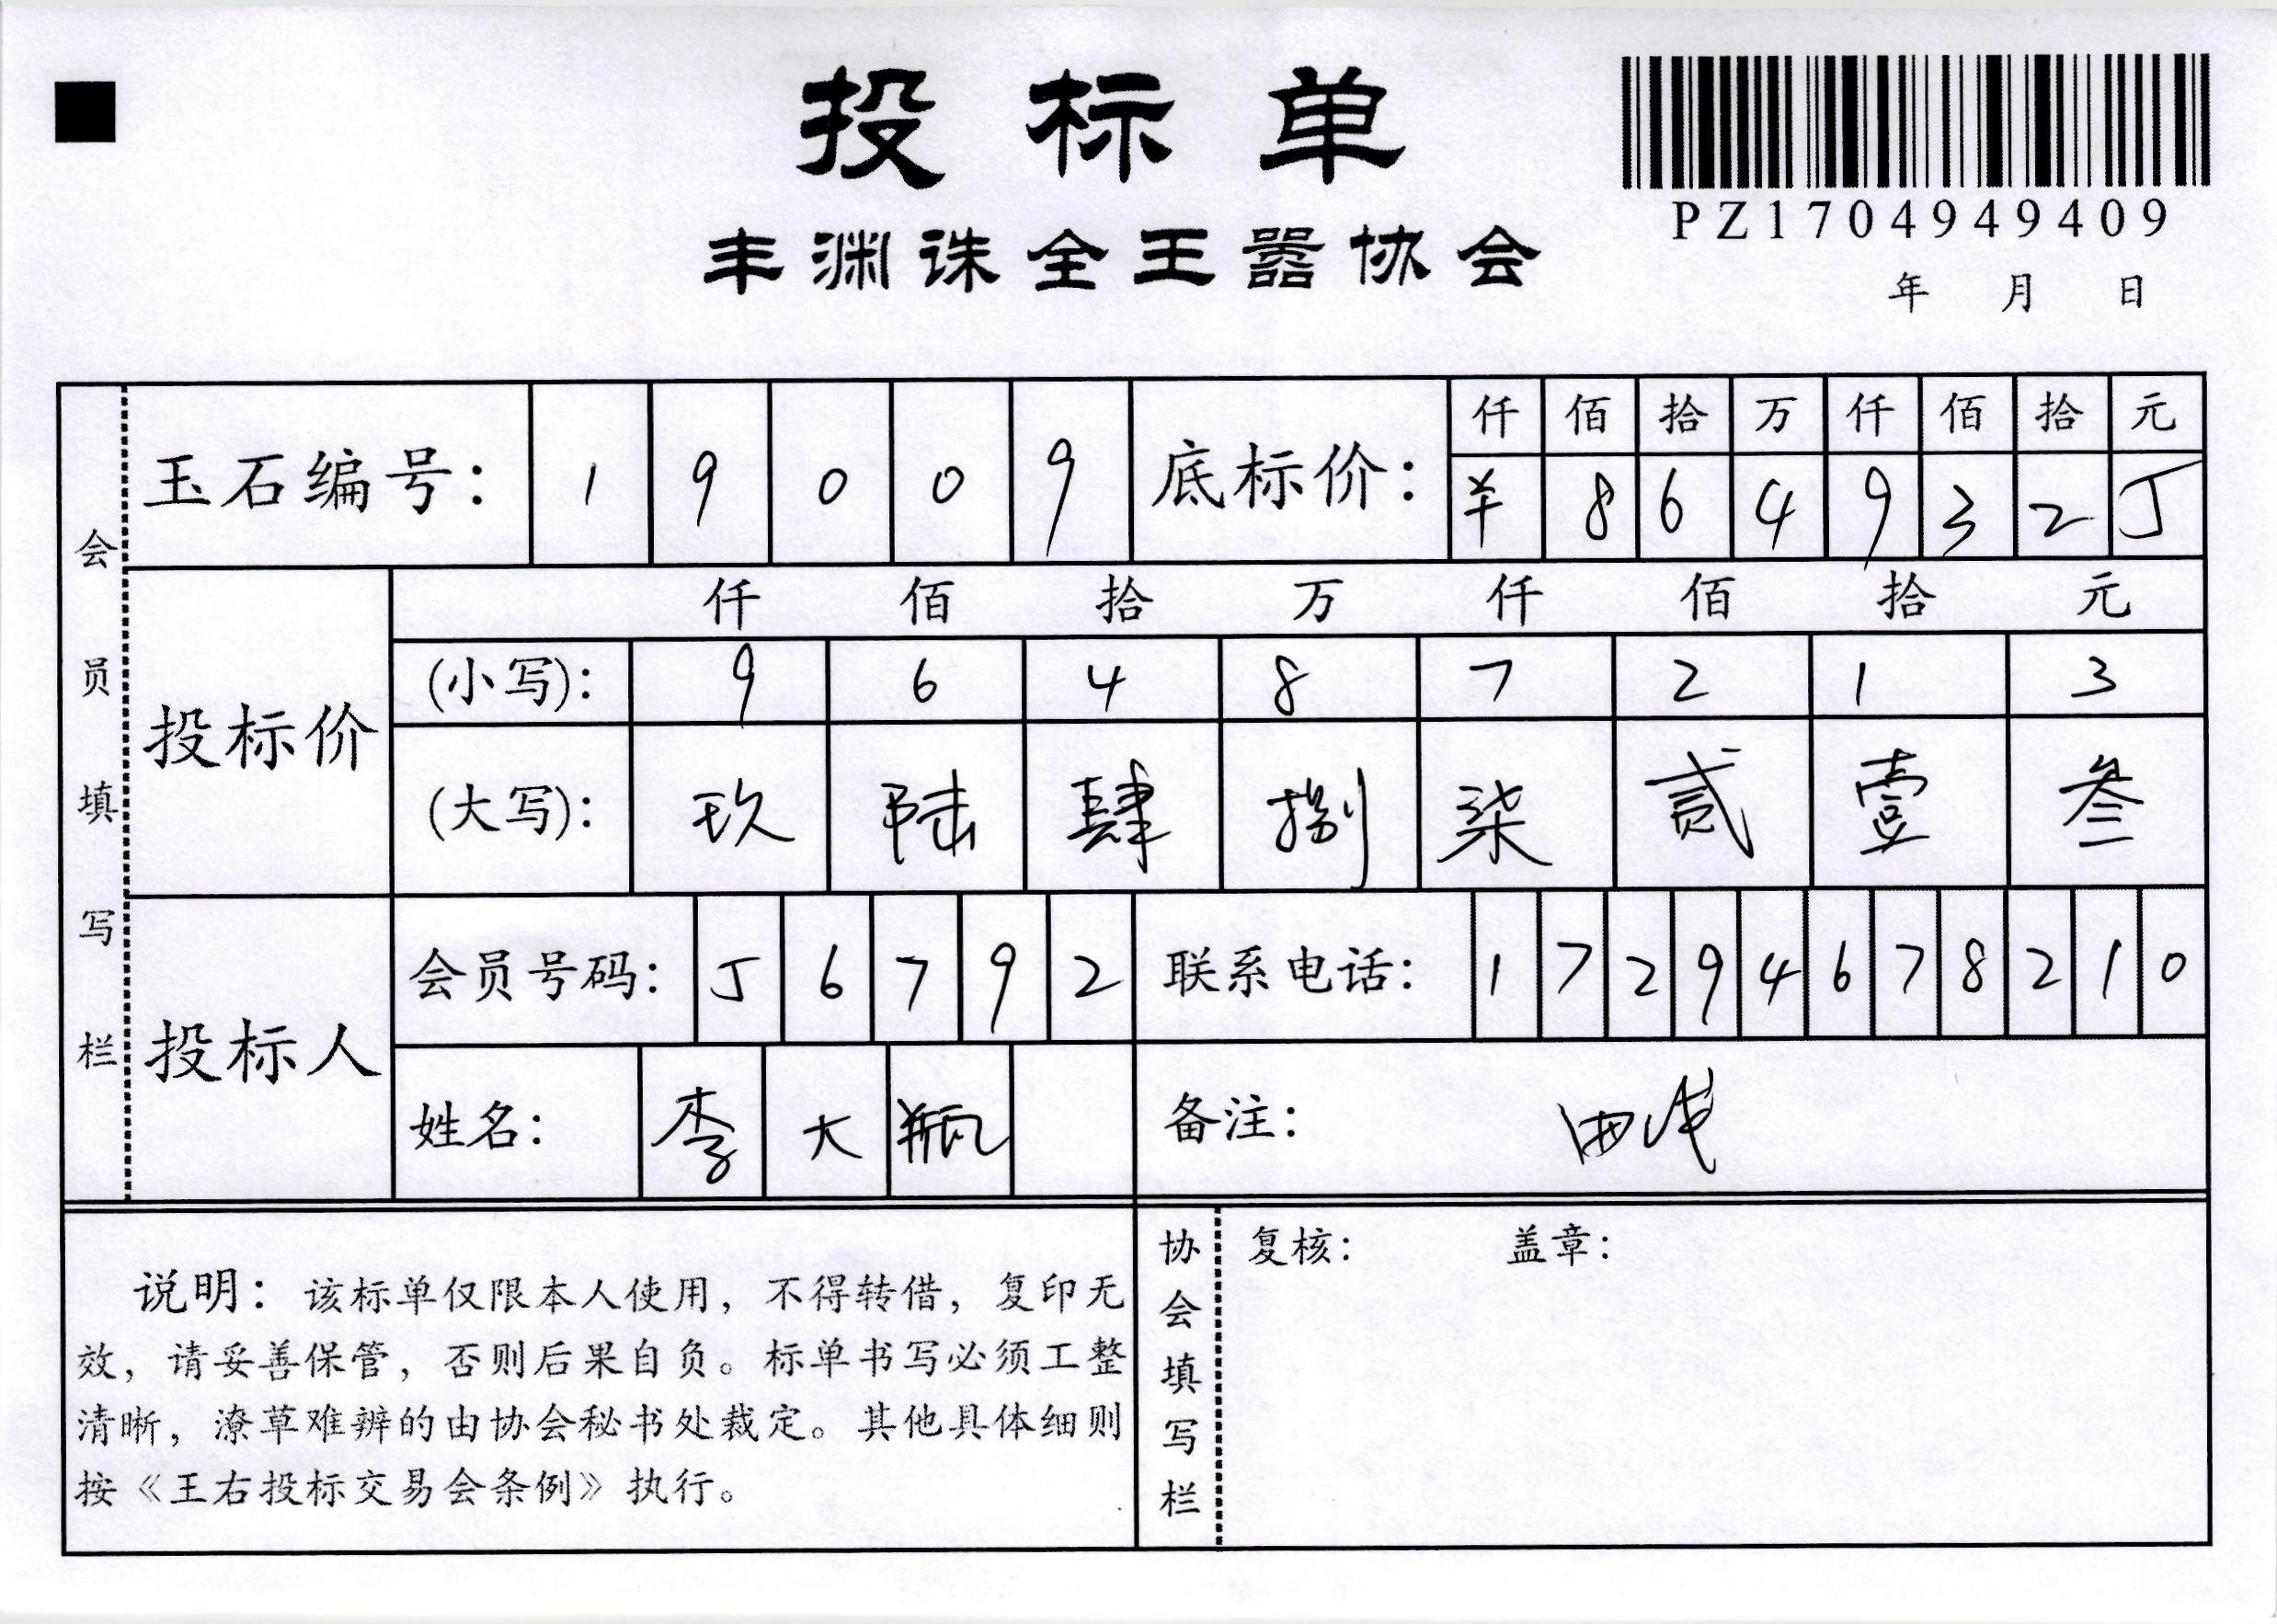 投标单
丰渊诛全王嚣协会
PZ1704949409
年 月 日
会员填写栏
玉石编号: 1 9 0 0 9
底标价: 仟 佰 拾 万 仟 佰 拾 元
¥ 8 6 4 9 3 2 5
投标价
仟 佰 拾 万 仟 佰 拾 元
(小写): 9 6 4 8 7 2 1 3
(大写): 玖 陆 肆 捌 柒 贰 壹 叁
投标人
会员号码: J 6 7 9 2
联系电话: 1 7 2 9 4 6 7 8 2 1 0
姓名: 李 大 瓶
备注:
说明: 该标单仅限本人使用, 不得转借, 复印无
效, 请妥善保管, 否则后果自负。标单书写必须工整
清晰, 潦草难辨的由协会秘书处裁定。其他具体细则
按《王右投标交易会条例》执行。
协会填写栏
复核: 盖章: